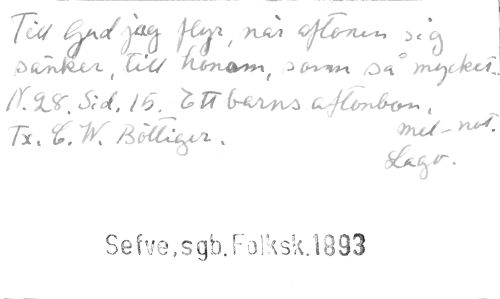 Till Gud jag flyr, när aftonen sig
sänker, till honom, som så mycket.
N. 28. Sid. 15. Ett barns aftonbön.
Tx. C. W. Böttiger.
mel-not.
Lago.
Sefve, sgb. Folksk. 1893